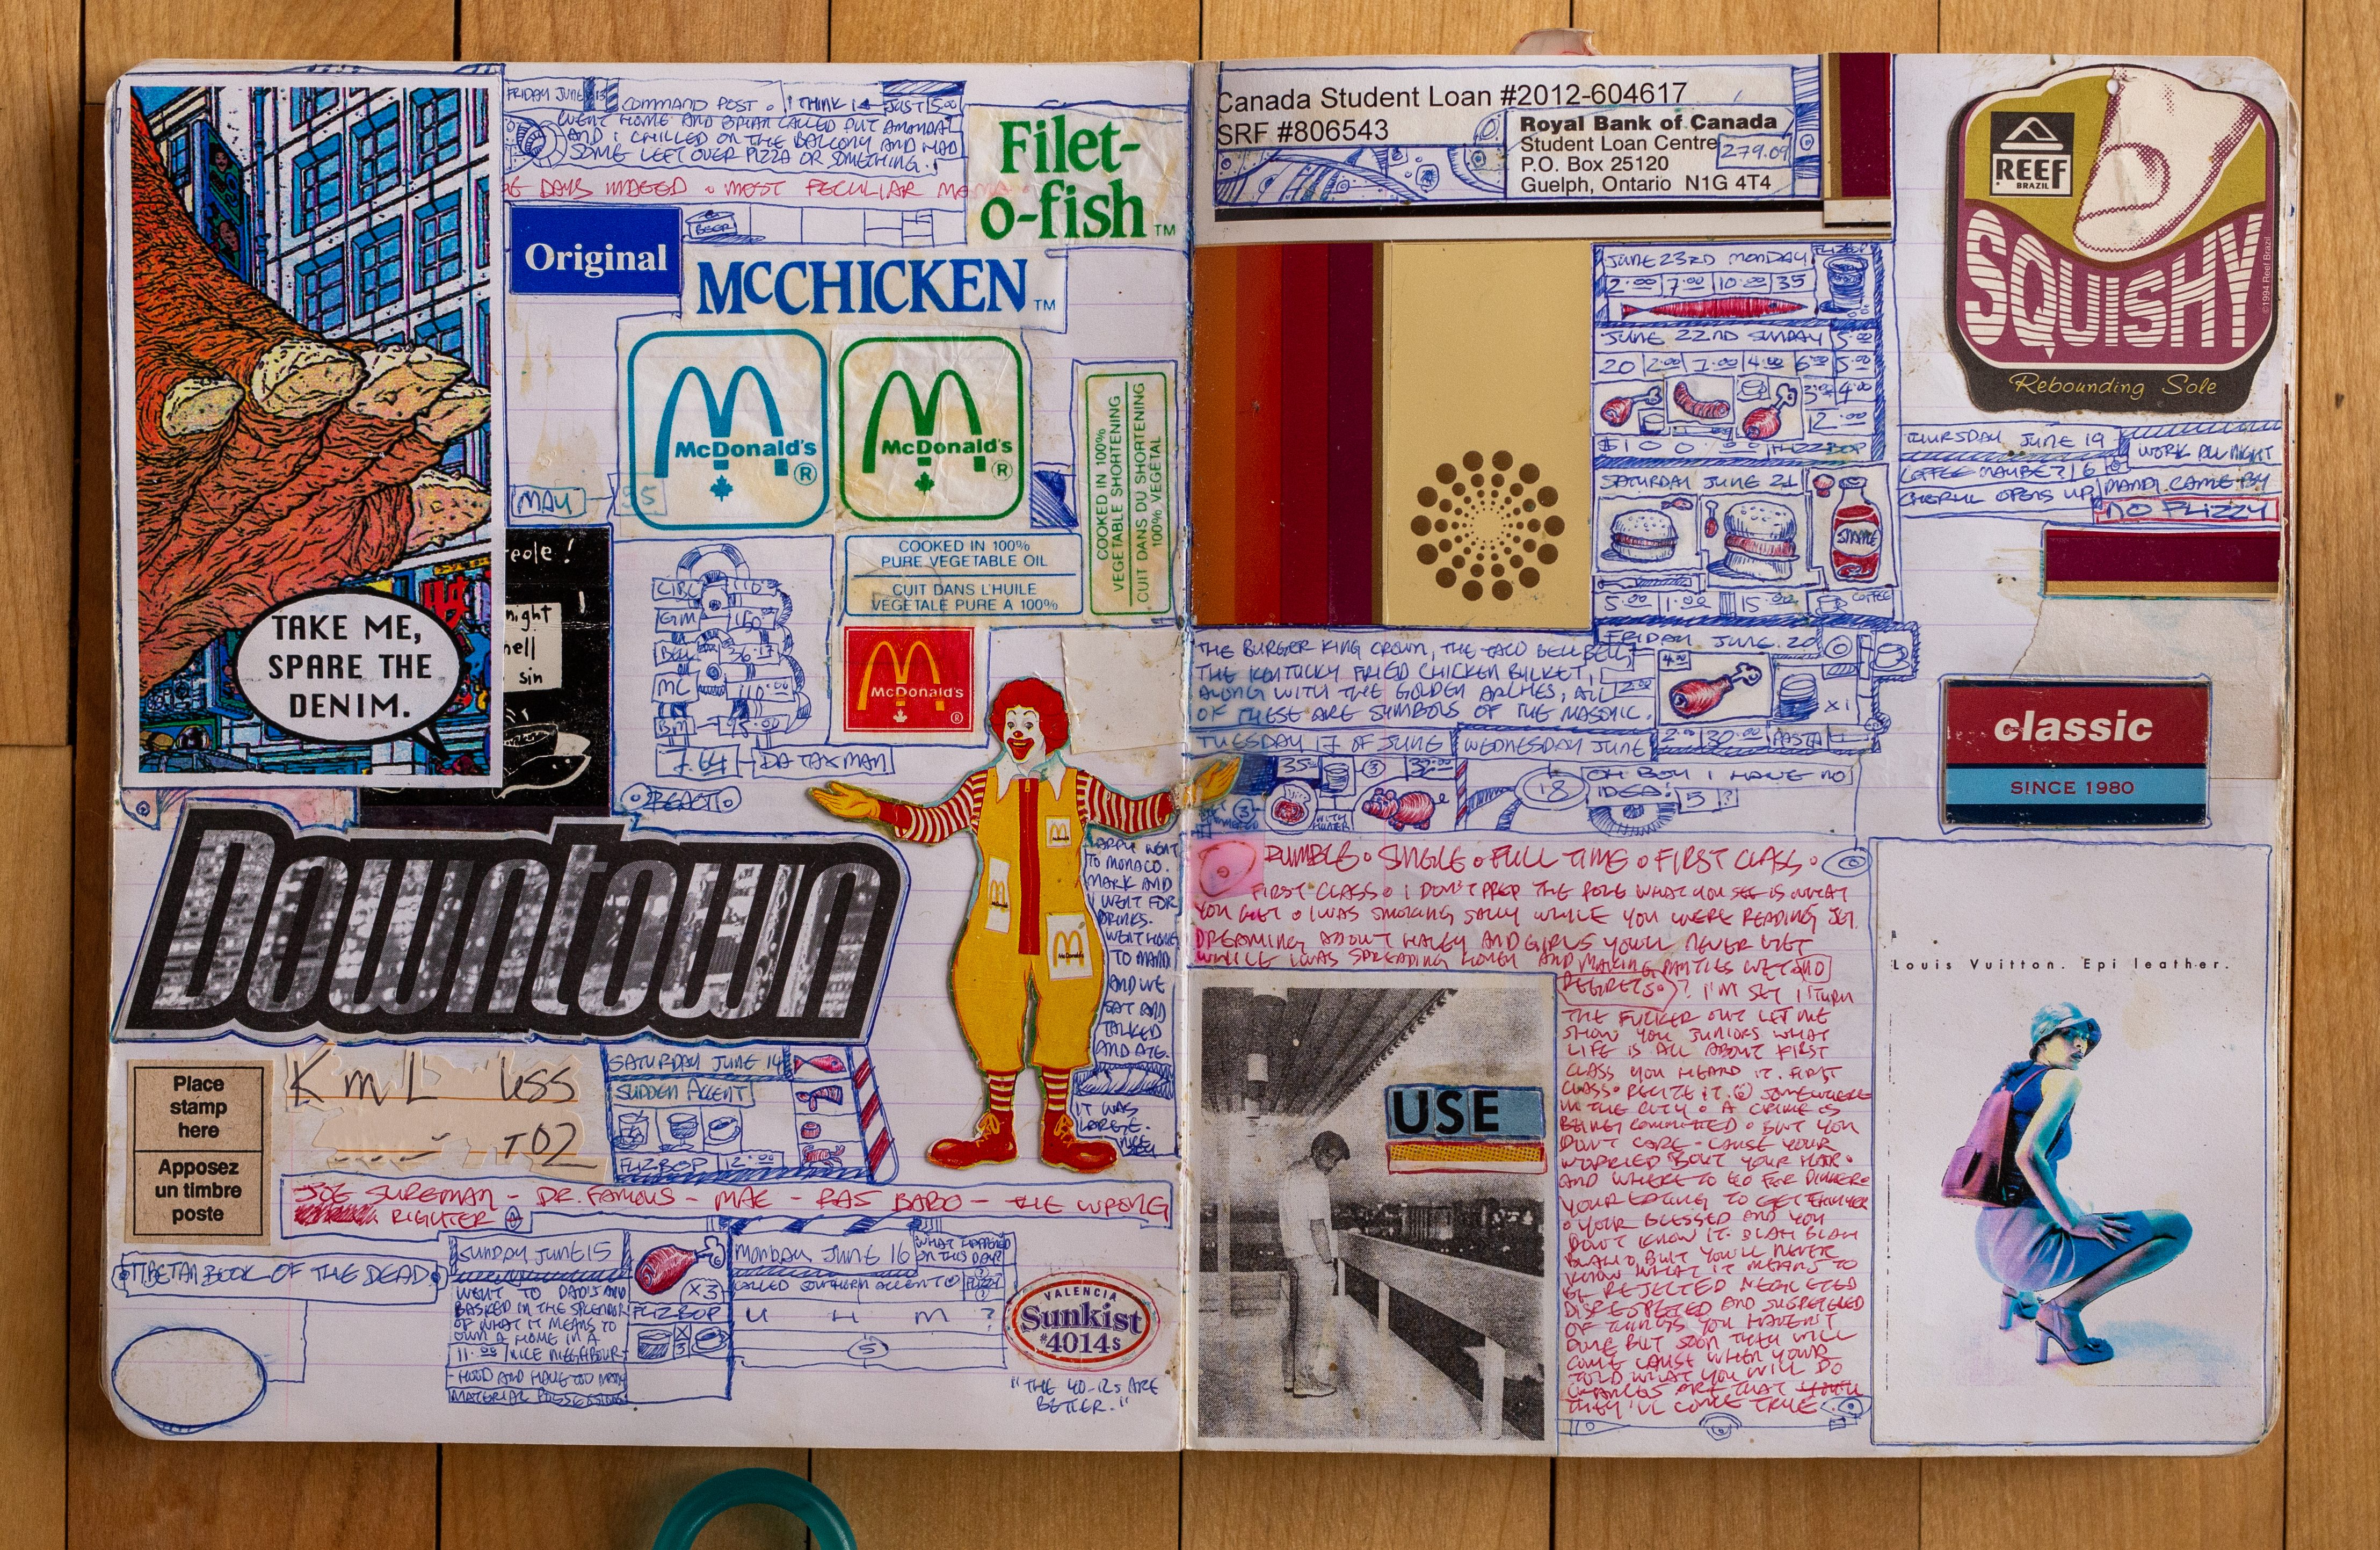 FRIDAY JUNE 13
COMMAND POST. I THINK I JUST 5.00
WENT HOME AND BRIAN CALLED BUT AMANDA
AND I CHILLED ON THE BALCONY AND HAD
SOME LEFT OVER PIZZA OR SOMETHING.
DAYS INDEED. MOST PECULIAR MAMA.
Filet-
o-fish™
Original
BEER
McCHICKEN™
McDonald's®
McDonald's®
COOKED IN 100%
VEGETABLE SHORTENING
CUIT DANS DU SHORTENING
100% VEGETAL
MAY
COOKED IN 100%
PURE VEGETABLE OIL
CUIT DANS L'HUILE
VEGETALE PURE A 100%
McDonald's®
TAKE ME,
SPARE THE
DENIM.
eole!
night
hell
sin
CIBC 110.00
GM 160.00
BELL 36.17
MC 110.00
BM 95.00
7.64 DA TAXMAN
REACT
Downtown
WENT
TO MONACO.
MARK AND
I WENT FOR
DRINKS.
WENT HOME
TO MANDI
AND WE
SAT AND
TALKED
AND ATE.
IT WAS
LARGE.
NICE
Place
stamp
here
Apposez
un timbre
poste
KmL less
TO2
SATURDAY JUNE 14
SUDDEN ACCENT
FLIZBOP 12.00
JOE SUREMAN - DR. FAMOUS - MAE - RAS BABO - THE WRONG
RIGHTER
TIBETAN BOOK OF THE DEAD
SUNDAY JUNE 15
WENT TO DAD'S AND
BASKED IN THE SPLENDOR
OF WHAT IT MEANS TO
OWN A HOME IN A
11.00 NICE NEIGHBOUR-
-HOOD AND HAVE TOO MANY
MATERIAL POSSESSIONS
X3
FLIZBOP
X3
MONDAY JUNE 16
WHAT HAPPENED
ON THIS DAY?
CALLED SOUTHERN ACCENT
U H M ?
5
VALENCIA
Sunkist
#4014s
"THE 40-125 ARE
BETTER."
Canada Student Loan #2012-604617
SRF #806543
Royal Bank of Canada
Student Loan Centre
P.O. Box 25120
Guelph, Ontario N1G 4T4
279.09
REEF
BRAZIL
SQUISHY
©1994 Reef Brazil
Rebounding Sole
JUNE 23RD MONDAY
2.00 7.00 10.00 35
JUNE 22ND SUNDAY 5.00
20 2.00 7.00 4.00 6.00 5.00
3.00 4.00
2.00
$100.00 FLIZZBOP
SATURDAY JUNE 21
SNAPPLE
5.00 1.00 15.00 COFFEE
THURSDAY JUNE 19
WORK ALL NIGHT
COFFEE MAYBE? 6
CHERYL OPENS UP
MANDI CAME BY
NO FLIZZY
FRIDAY JUNE 20
4.00
2.00
X1
2.00 30.00 PASTA
THE BURGER KING CROWN, THE TACO BELL BELL,
THE KENTUCKY FRIED CHICKEN BUCKET,
ALONG WITH THE GOLDEN ARCHES, ALL
OF THESE ARE SYMBOLS OF THE MASONIC.
TUESDAY 17 OF JUNE
35
3
WEDNESDAY JUNE
18
OH BOY I HAVE NO
IDEA! 5 ?
classic
SINCE 1980
RUMBLE. SINGLE. FULL TIME. FIRST CLASS.
FIRST CLASS. I DON'T PREP THE POLE WHAT YOU SEE IS WHAT
YOU GET. I WAS SMOKING SALLY WHILE YOU WERE READING JET.
DREAMING ABOUT HALEY AND GIRLS YOU'LL NEVER GET
WHILE I WAS SPREADING HONEY AND MAKING PANTIES WET AND
REGRETS? I'M SET I TURN
THE FUCKER OUT LET ME
SHOW YOU JUNIORS WHAT
LIFE IS ALL ABOUT FIRST
CLASS YOU HEARD IT. FIRST
CLASS. RECITE IT. SOMEWHERE
IN THE CITY. A CRIME IS
BEING COMMITTED. BUT YOU
DON'T CARE. CAUSE YOUR
WORRIED BOUT YOUR HAIR.
AND WHERE TO GO FOR DINNER.
YOUR EATING TO GET THINNER
. YOUR BLESSED AND YOU
DON'T KNOW IT. BLAH BLAH
BLAH. BUT YOU'LL NEVER
KNOW WHAT IT MEANS TO
BE REJECTED NEGLECTED
DISRESPECTED AND SUSPECTED
OF THINGS YOU HAVEN'T
DONE BUT SOON THEY WILL
COME CAUSE WHEN YOUR
TOLD WHAT YOU WILL DO
CHANCES ARE THAT
THEY'LL COME TRUE.
USE
Louis Vuitton. Epi leather.